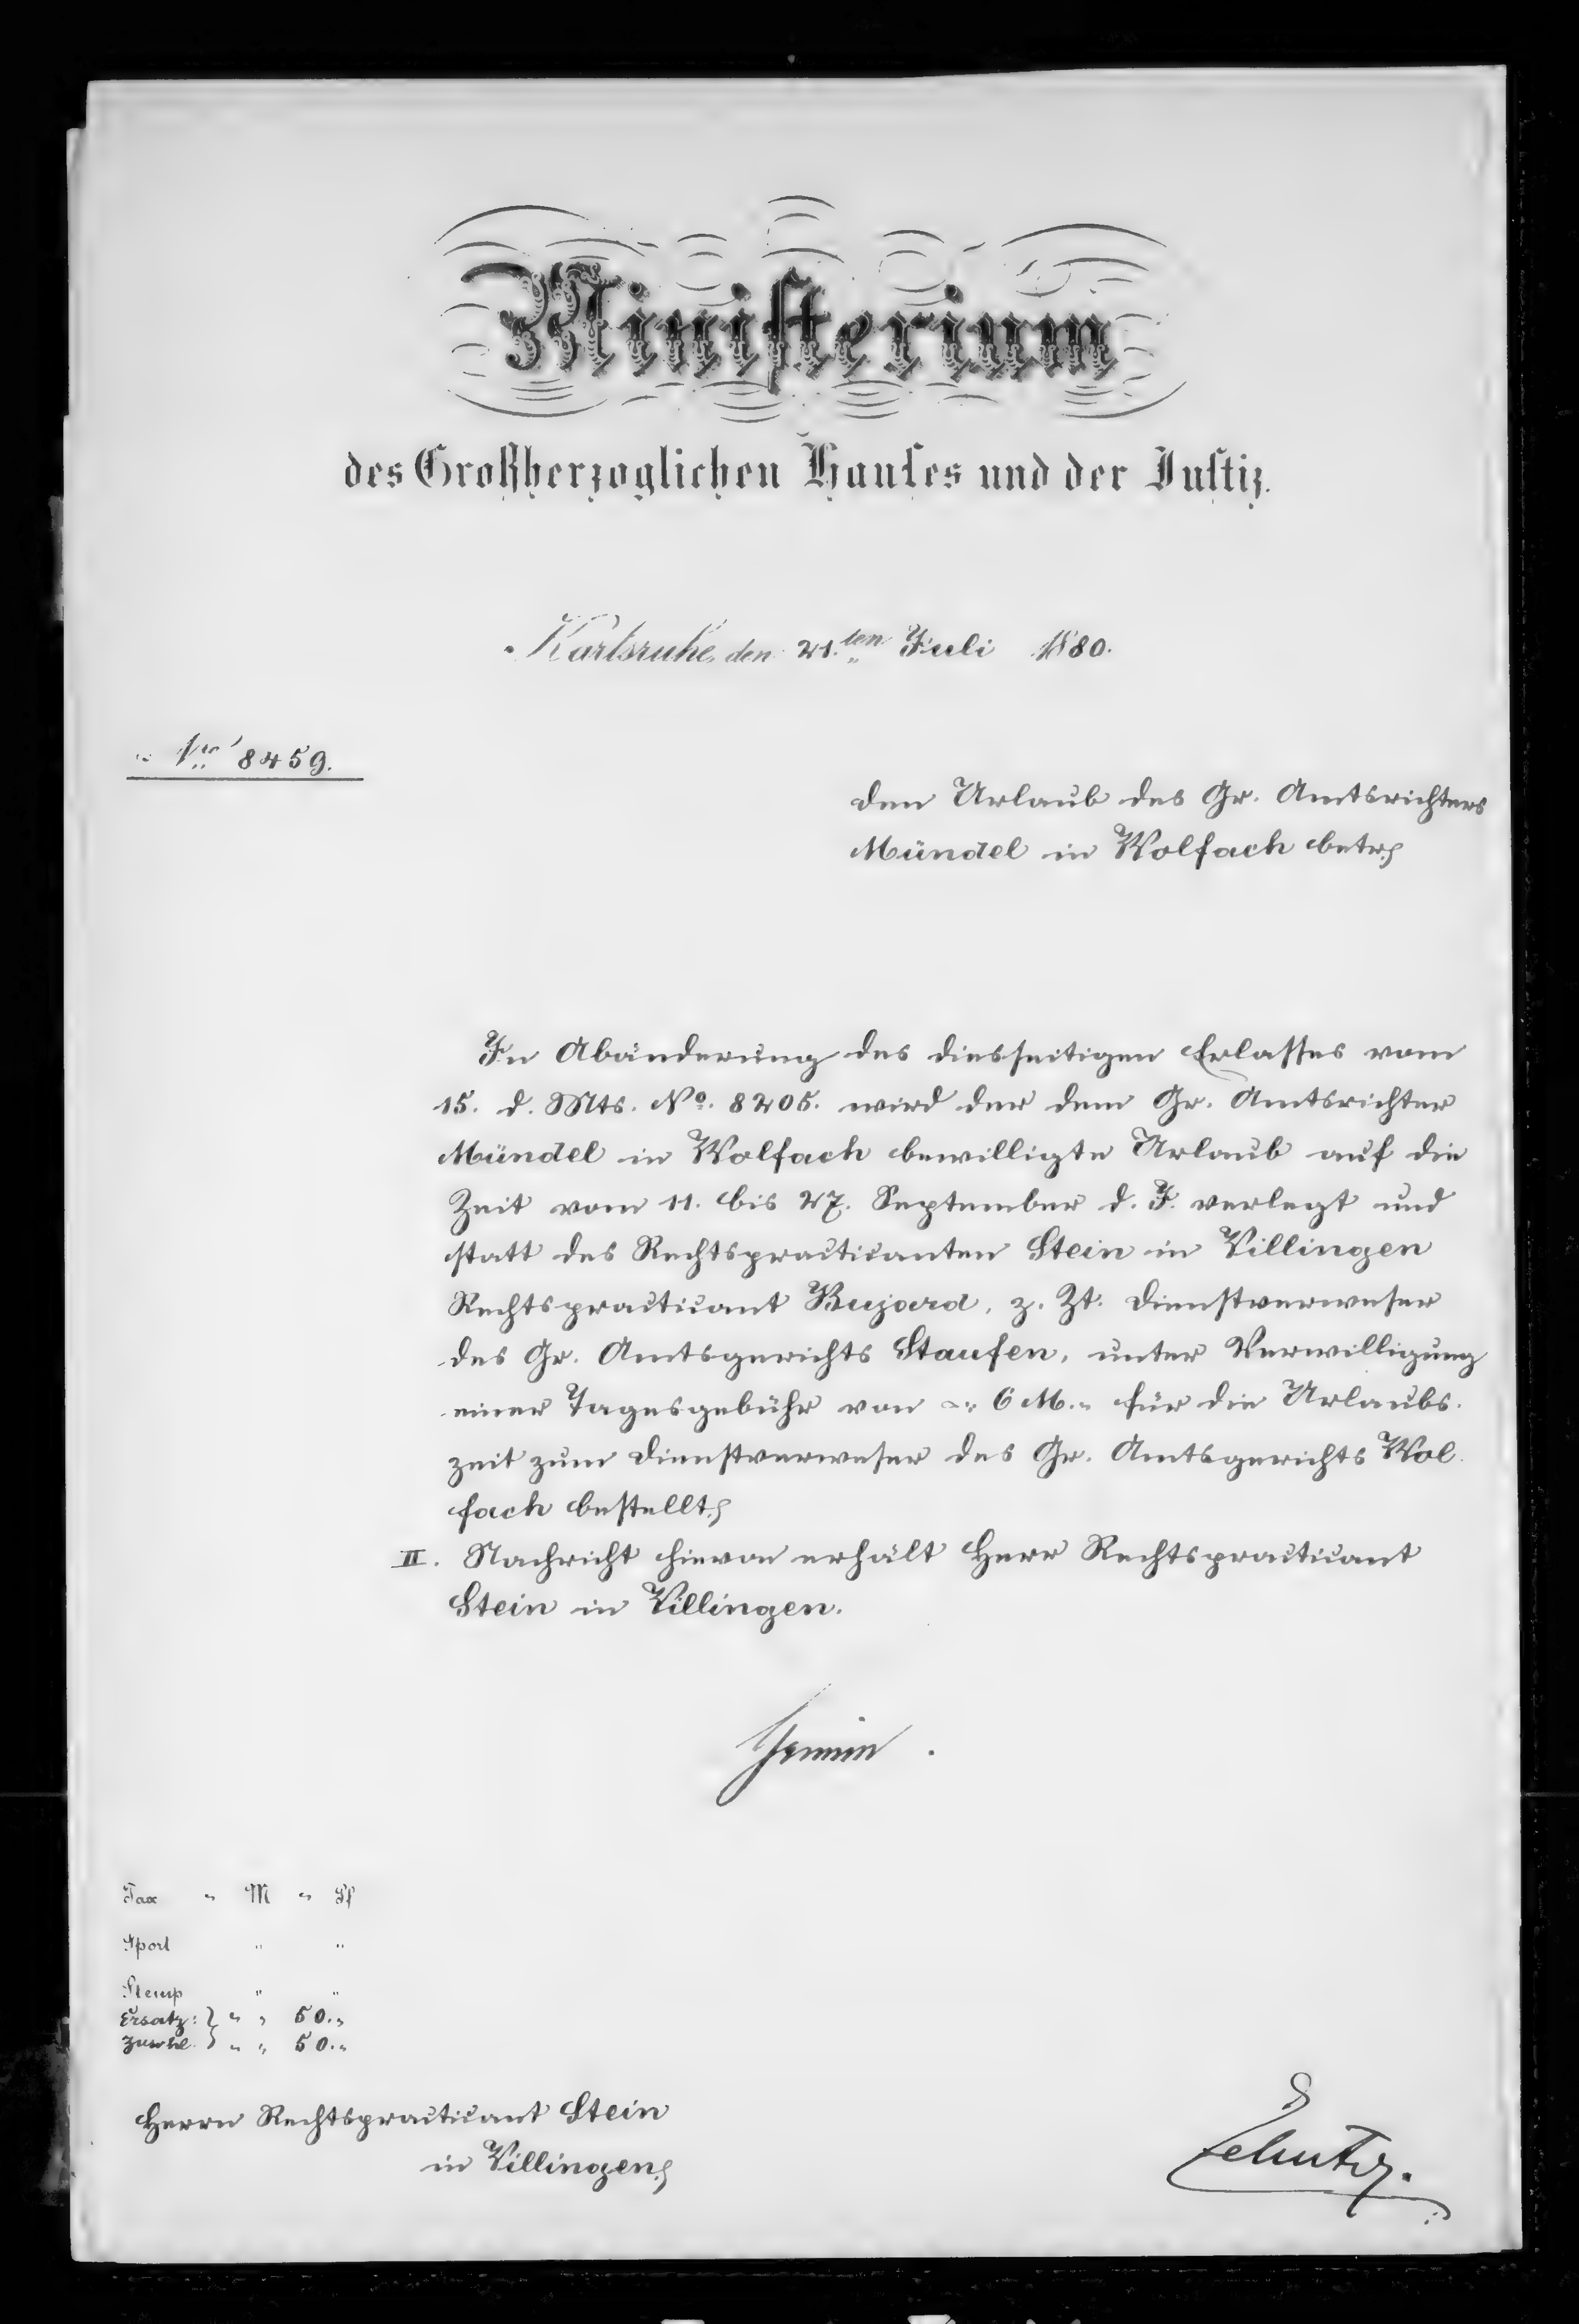 Ministerium
des Großherzoglichen Hauses und der Justiz.
Karlsruhe, den 21.ten Juli 1880.
Nro 8459.
Den Urlaub des Gr. Amtsrichters
Mündel in Wolfach betr.
In Abänderung des diesseitigen Erlasses vom
15. d. Mts. No. 8205. wird der dem Gr. Amtsrichter
Mündel in Wolfach bewilligte Urlaub auf die
Zeit vom 11. bis 27. September d. J. verlegt und
statt des Rechtspracticanten Stein in Villingen
Rechtspracticant Bujard, z. Zt. Dienstverweser
des Gr. Amtsgerichts Staufen, unter Verwilligung
einer Tagesgebühr von 6 M. für die Urlaubs-
zeit zum Dienstverweser des Gr. Amtsgerichts Wol-
fach bestellt.
II. Nachricht hievon erhält Herr Rechtspracticant
Stein in Villingen.
Tax " M " Pf
Sport " "
Stemp " "
Ersatz: } " " 50. "
} " " 50. "
Herrn Rechtspracticant Stein
in Villingen